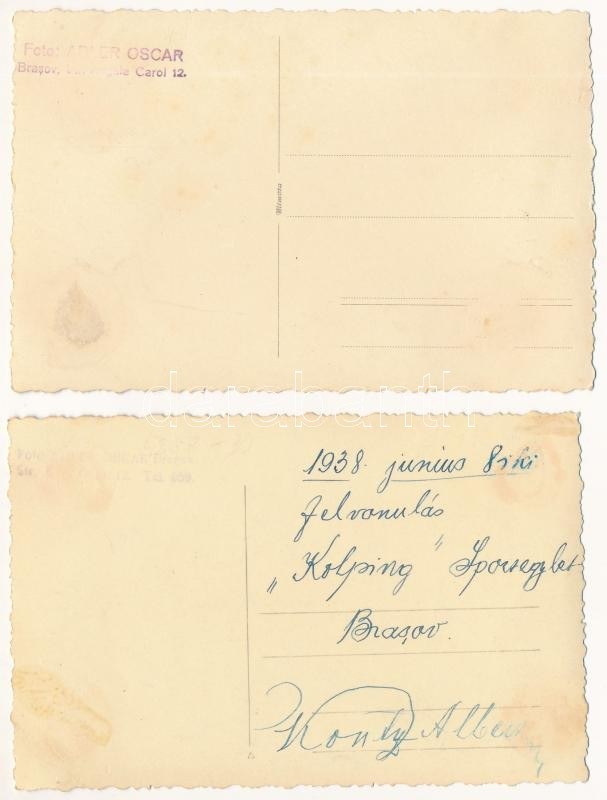 Foto: ADLER OSCAR
Brașov, Carol 12.
Mimosa
darabanth
Foto ADLER OSCAR
Str. 12. Tel. 459.
1938. junius 8iki
felvonulás
„Kolping" Sporsegylet
Brașov.
Konty Albert